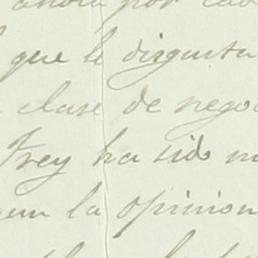 ahora por
que le disgusta
clase de nego
Frey ha sido
la opinion